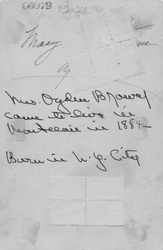 00079
Mary
Mrs. Ogden Brower
came to live in
Montclair in 1884-
Born in N.Y. City